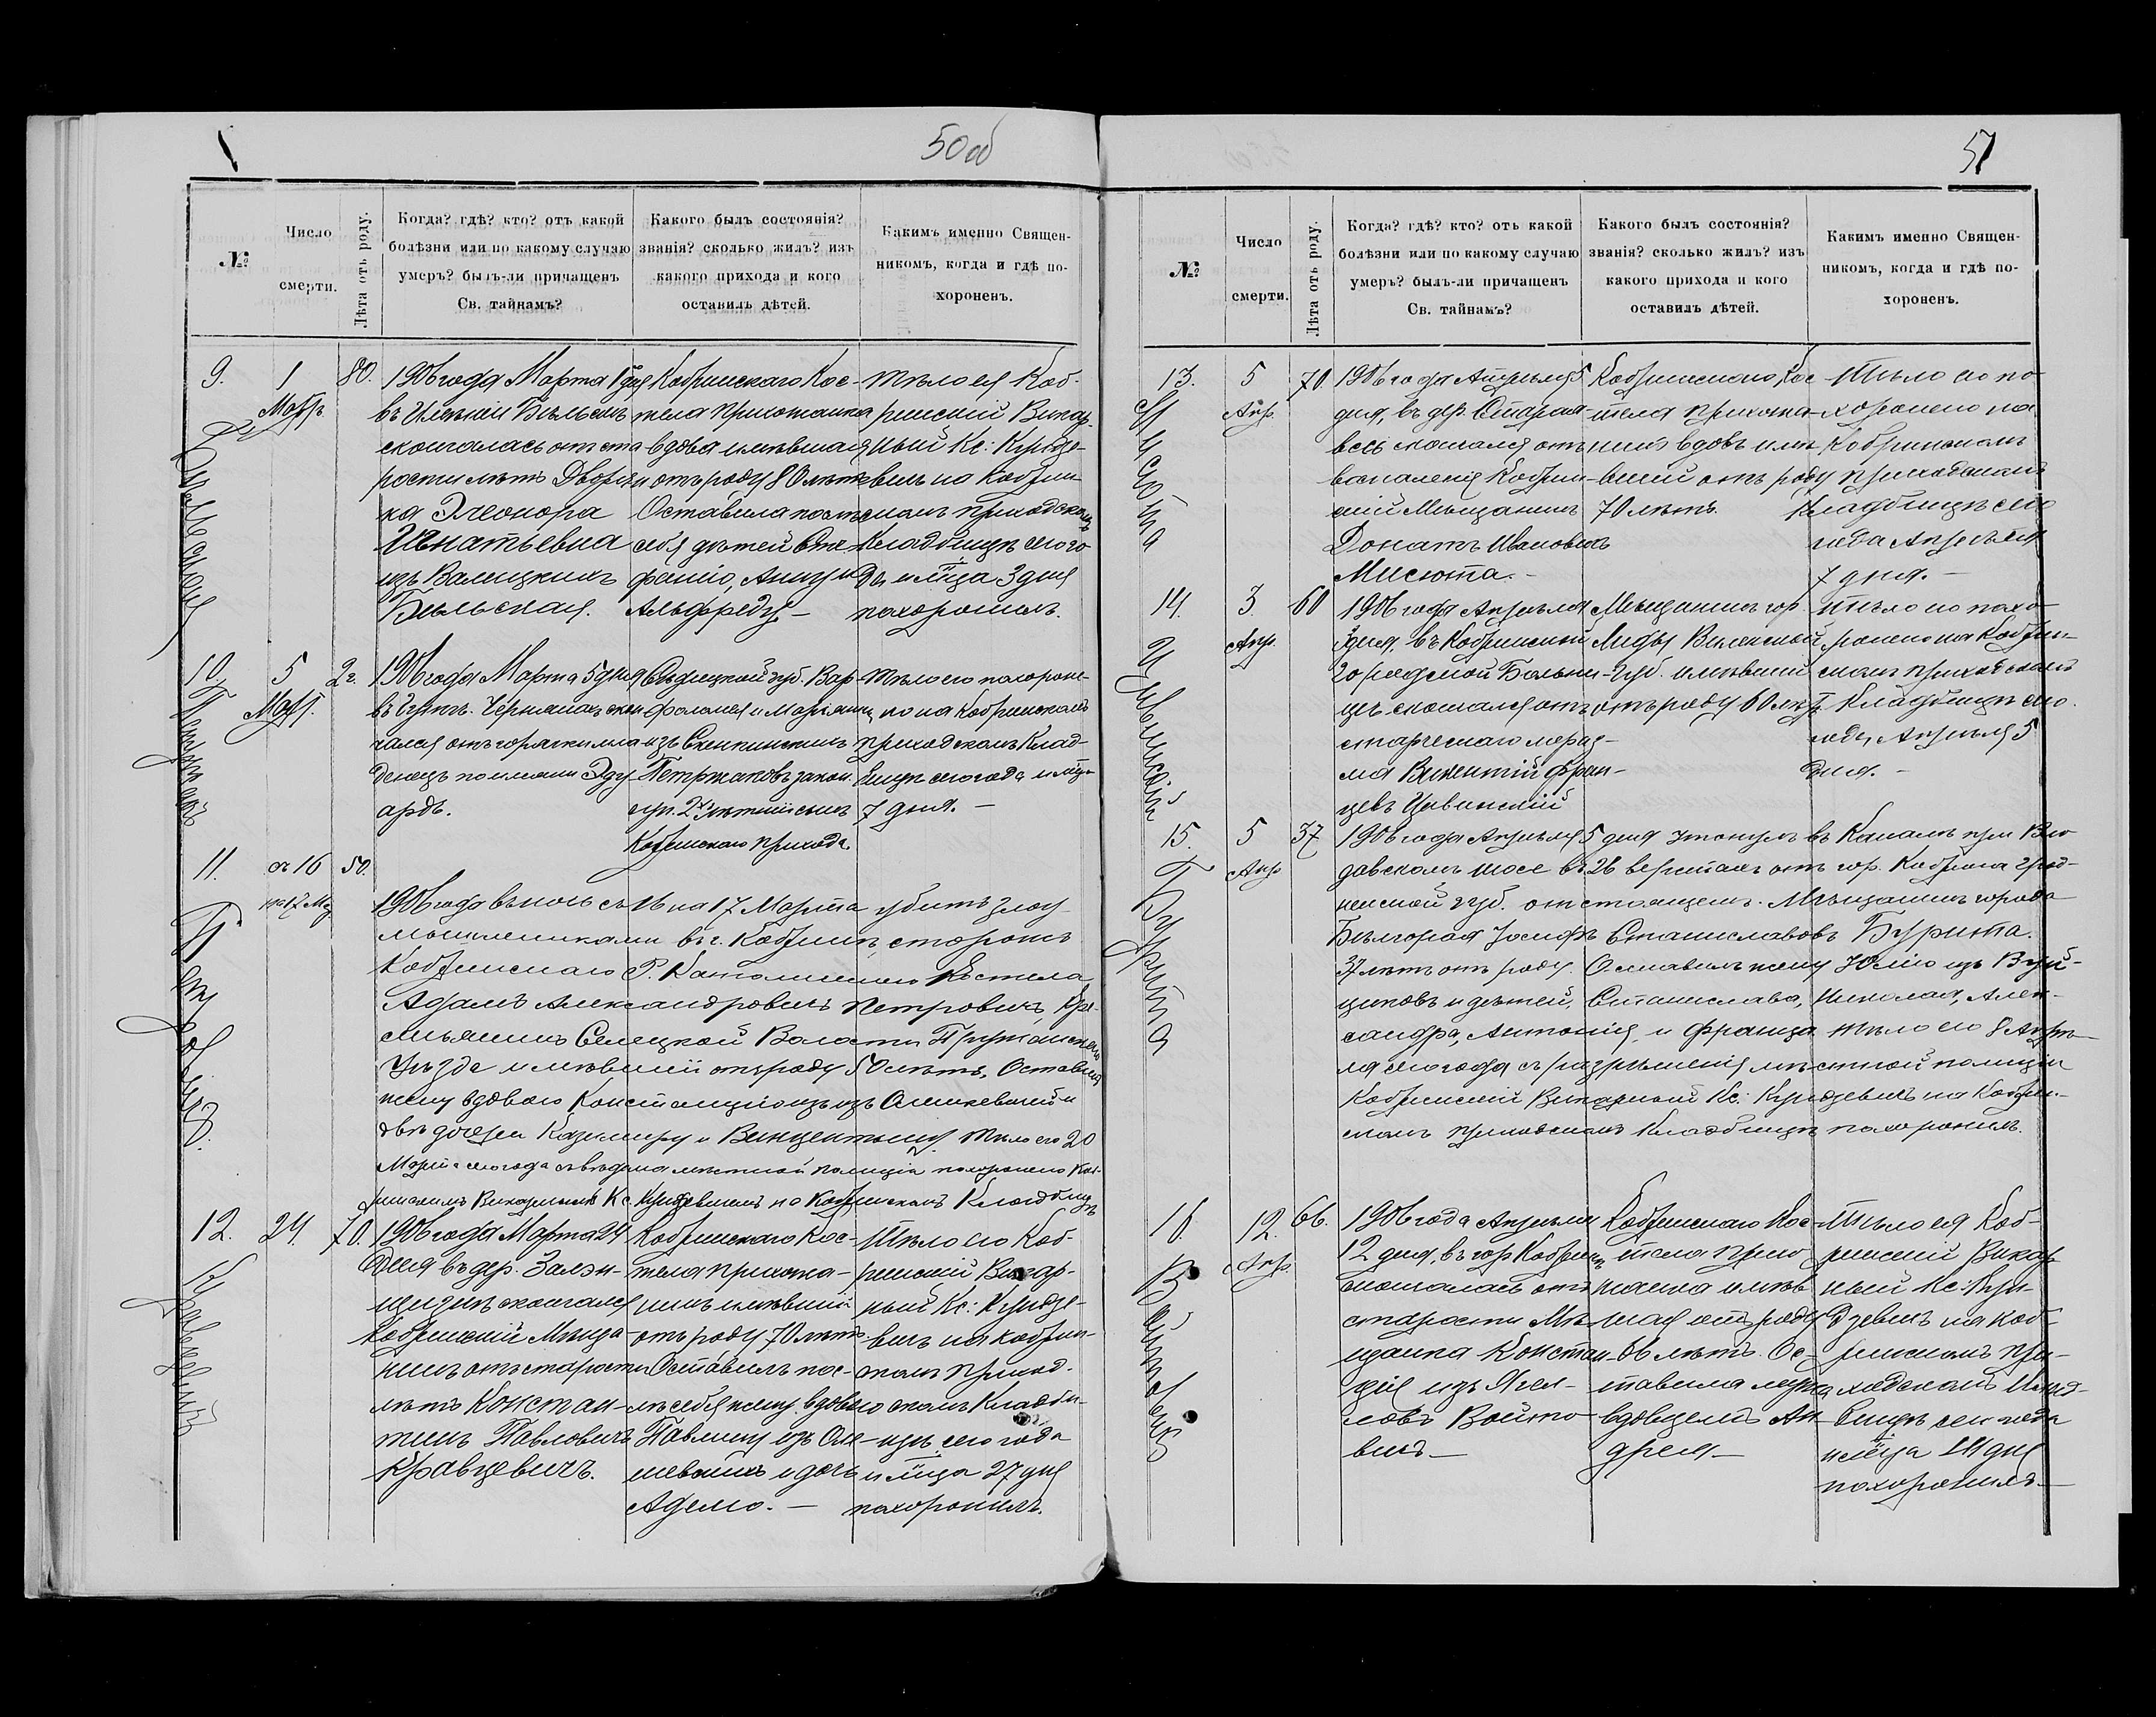 50об
№
Число
смерти.
Лѣта отъ роду.
Когда? гдѣ? кто? отъ какой
болѣзни или по какому случаю
умеръ? былъ-ли причащенъ
Св. тайнамъ?
Какого былъ состоянія?
званія? сколько жилъ? изъ
какого прихода и кого
оставилъ дѣтей.
Какимъ именно Священ-
никомъ, когда и гдѣ по-
хороненъ.
9.
1
Мар
80.
Бѣльская
1906 года Марта 1 дня
въ Имѣніи Бѣльскъ
скончалась отъ ста
рости лѣтъ Дворян
ка Элеонора
Игнатьевна
изъ Валицкихъ
Бѣльская.
Кобринскаго Кос-
тела прихожанка
вдова имѣвшая
отъ роду 80 лѣтъ
Оставила послѣ
себя дѣтей
Альфреда. —
Тѣло ея Коб-
ринскій Викар-
ный Кс: Кундзе-
вичъ на Кобрин-
скомъ приходскомъ
Кладбищѣ сего го-
да и м-ца 3 дня
похоронилъ.
10.
5
Мар.
2 г.
1906 года Марта 5 дня
скон
чался отъ горячки мла
денецъ по имени Эду
ардъ.
Сѣдлецкой губ. Вар-
фоломея и Марьянны
изъ
Петржаковъ закон.
суп. 2х лѣтній сынъ
Кобринскаго прихода
Тѣло его похороне-
но на Кобринскомъ
приходскомъ Клад-
бищѣ сего года и м-ца
7 дня. —
11.
съ 16
на 17 Мар
50.
Петровичъ
1906 года въ ночь съ 16 на 17 Марта убитъ злоу-
мышленниками въ г. Кобринѣ, сторожъ
Кобринскаго Р. Католическаго Костела
Адамъ Александровичъ Петровичъ, Кре-
стьянинъ Селецкой Волости Пружанскаго
Уѣзда имѣвшій отъ роду 50 лѣтъ, Оставилъ
жену вдовою Констанцію изъ
двѣ дочери Казимиру и Винцентину. Тѣло его 20
Марта сего года съ вѣдома мѣстной полиціи похоронено Коб-
ринскимъ Викарнымъ Кс. Кундзевичемъ на Кобринскомъ Кладбищѣ
12.
24.
70.
Кравцевичъ
1906 года Марта 24
Дня въ дер. Залѣ-
скончался
Кобринскій Мѣща-
нинъ отъ старости
лѣтъ Констан-
тинъ Павловичъ
Кравцевичъ.
Кобринскаго Кос-
тела прихожа-
нинъ имѣвшій
отъ роду 70 лѣтъ
Оставилъ пос-
лѣ себя жену вдовою
Павлину изъ Оле-
шевскихъ и дочь
Аделю. —
Тѣло его Коб-
ринскій Викар-
ный Кс: Кундзе-
вичъ на Кобрин-
скомъ приход-
скомъ Кладби-
щѣ сего года
и м-ца 27 дня
похоронилъ.
51
№
Число
смерти.
Лѣта отъ роду.
Когда? гдѣ? кто? отъ какой
болѣзни или по какому случаю
умеръ? былъ-ли причащенъ
Св. тайнамъ?
Какого былъ состоянія?
званія? сколько жилъ? изъ
какого прихода и кого
оставилъ дѣтей.
Какимъ именно Священ-
никомъ, когда и гдѣ по-
хороненъ.
13.
5
Апр
70
Мисюта
1906 года Апрѣля 5
дня, въ дер. Старая
весь скончался отъ
воспаленія Кобрин-
скій Мѣщанинъ
Донатъ Ивановичъ
Мисюта. —
Кобринскаго Кос
тела прихожа-
нинъ вдовъ имѣ
вшій отъ роду
70 лѣтъ.
Тѣло его по-
хоронено на
Кобринскомъ
приходскомъ
Кладбищѣ сего
года Апрѣля
7 дня. —
14.
3
Апр.
60
Цивинскій
1906 года Апрѣля
3 дня, въ Кобринской
городской Больни-
цѣ скончался отъ
старческаго мараз-
ма Викентій Фран-
цевъ Цивинскій
Мѣщанинъ гор.
Лиды Виленской
губ. имѣвшій
отъ роду 60 лѣтъ
Тѣло его похо-
ронено на Кобрин-
скомъ приходскомъ
Кладбищѣ сего
года, Апрѣля 5
дня. —
15.
5
Апр
37
Бурита
1906 года Апрѣля 5 дня утонулъ въ Каналѣ при
шосе въ 26 верстахъ отъ гор. Кобрина Грод-
ненской губ. отстоящемъ. Мѣщанинъ города
Бѣлгорая Іосифъ Станиславовъ Бурита.
37 лѣтъ отъ роду. Оставилъ жену Юлію изъ Вуй-
циковъ и дѣтей, Станислава, Николая, Алек-
сандра, Антонія и Франца. Тѣло его 8 Апрѣ-
ля сего года съ разрѣшенія мѣстной полиціи
Кобринскій Викарный Кс: Кундзевичъ на Кобрин-
скомъ приходскомъ Кладбищѣ похоронилъ.
16.
12.
Апр.
66.
Войтовичъ
1906 года Апрѣля
12 дня, въ гор. Кобринѣ
скончалась отъ
старости Мѣ-
щанка Констан-
ція изъ
Войто-
вичъ —
Кобринскаго Кос-
тела прихо-
жанка имѣв
шая отъ роду
66 лѣтъ. Ос-
тавила мужа
вдовцемъ Ан-
дрея —
Тѣло ея Коб-
ринскій Викар
ный Кс: Кун-
дзевичъ на Коб-
ринскомъ при-
ходскомъ Клад-
бищѣ сего года
и м-ца 14 дня
похоронилъ. —